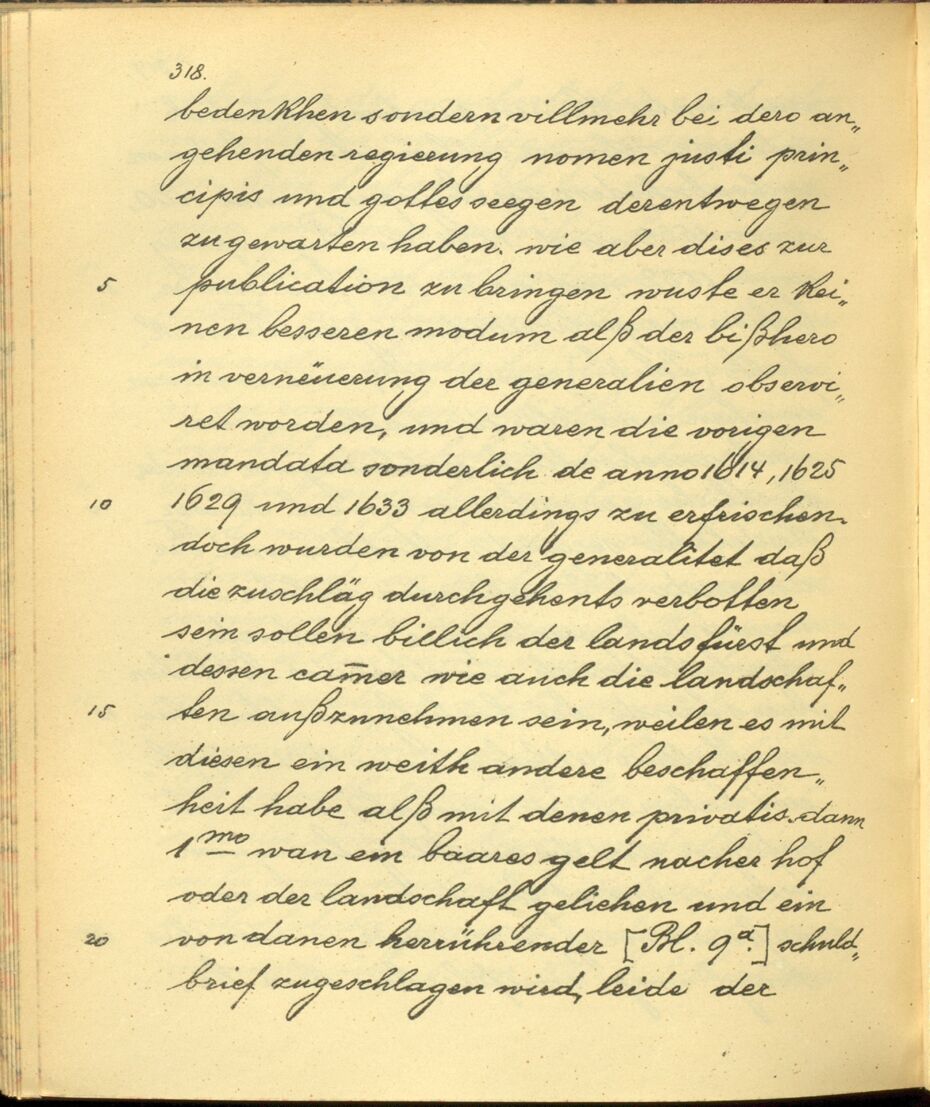 318.
bedenkhen sondern villmehr bei dero an„
gehenden regierung nomen justi prin„
cipis und gottes seegen derentwegen
zu gewarten haben. wie aber dises zur
5 publication zu bringen wuste er kei„
nen besseren modum alß der bißhero
in verneüerung der generalien observi„
ret worden, und waren die vorigen
mandata sonderlich de anno 1614, 1625
10 1629 und 1633 allerdings zu erfrischen.
doch wurden von der generalitet daß
die zuschläg durchgehents verbotten
sein sollen billich der landsfürst und
dessen cam̄er wie auch die landschaf„
15 ten außzunehmen sein, weilen es mit
diesen ein weith andere beschaffen„
heit habe alß mit denen privatis. dann
1mo wan ein baares gelt nacher hof
oder der landschaft geliehen und ein
20 von danen herrührender [Bl. 9a.] schuld„
brief zugeschlagen wird, leide der